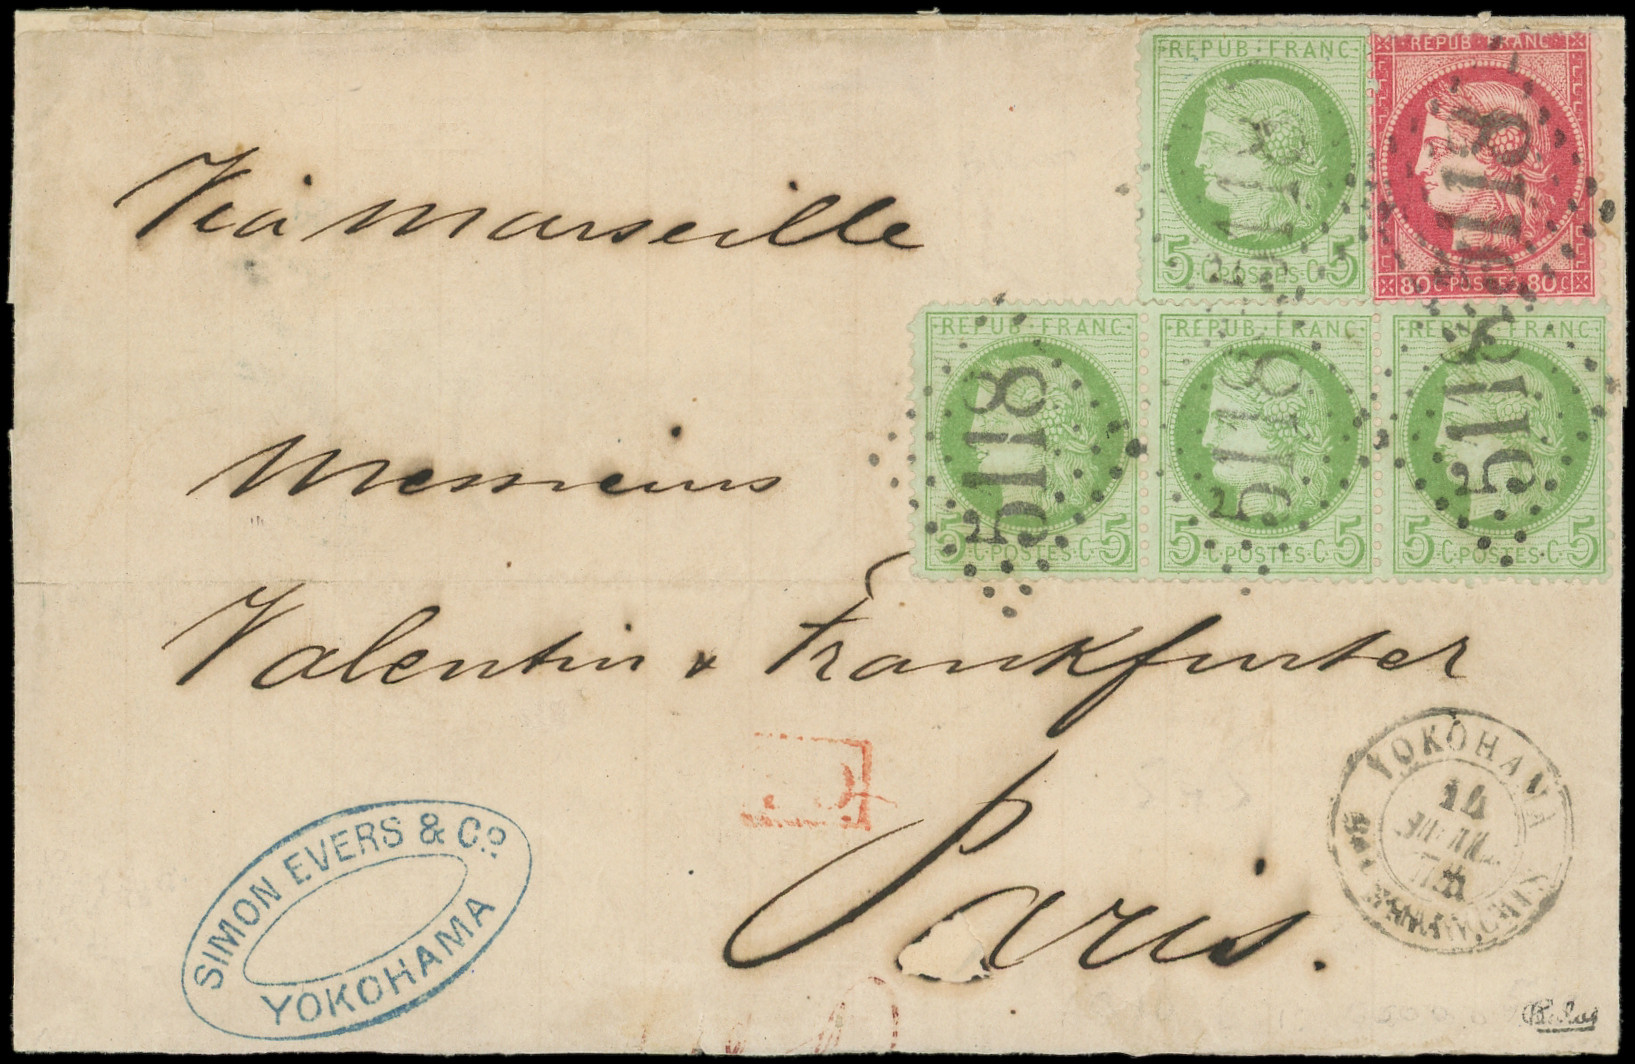 REPUB · FRANC
5 · C · POSTES · C · 5
5118
REPUB · FRANC
80 C · POSTES · 80 C
5118
Via Marseille
REPUB · FRANC
5 · C · POSTES · C · 5
5118
REPUB · FRANC
5 · C · POSTES · C · 5
5118
REPUB · FRANC
5 · C · POSTES · C · 5
5118
Messieurs
Valentin & Frankfurter
Paris.
YOKOHAMA
14
SIMON EVERS & Co.
YOKOHAMA